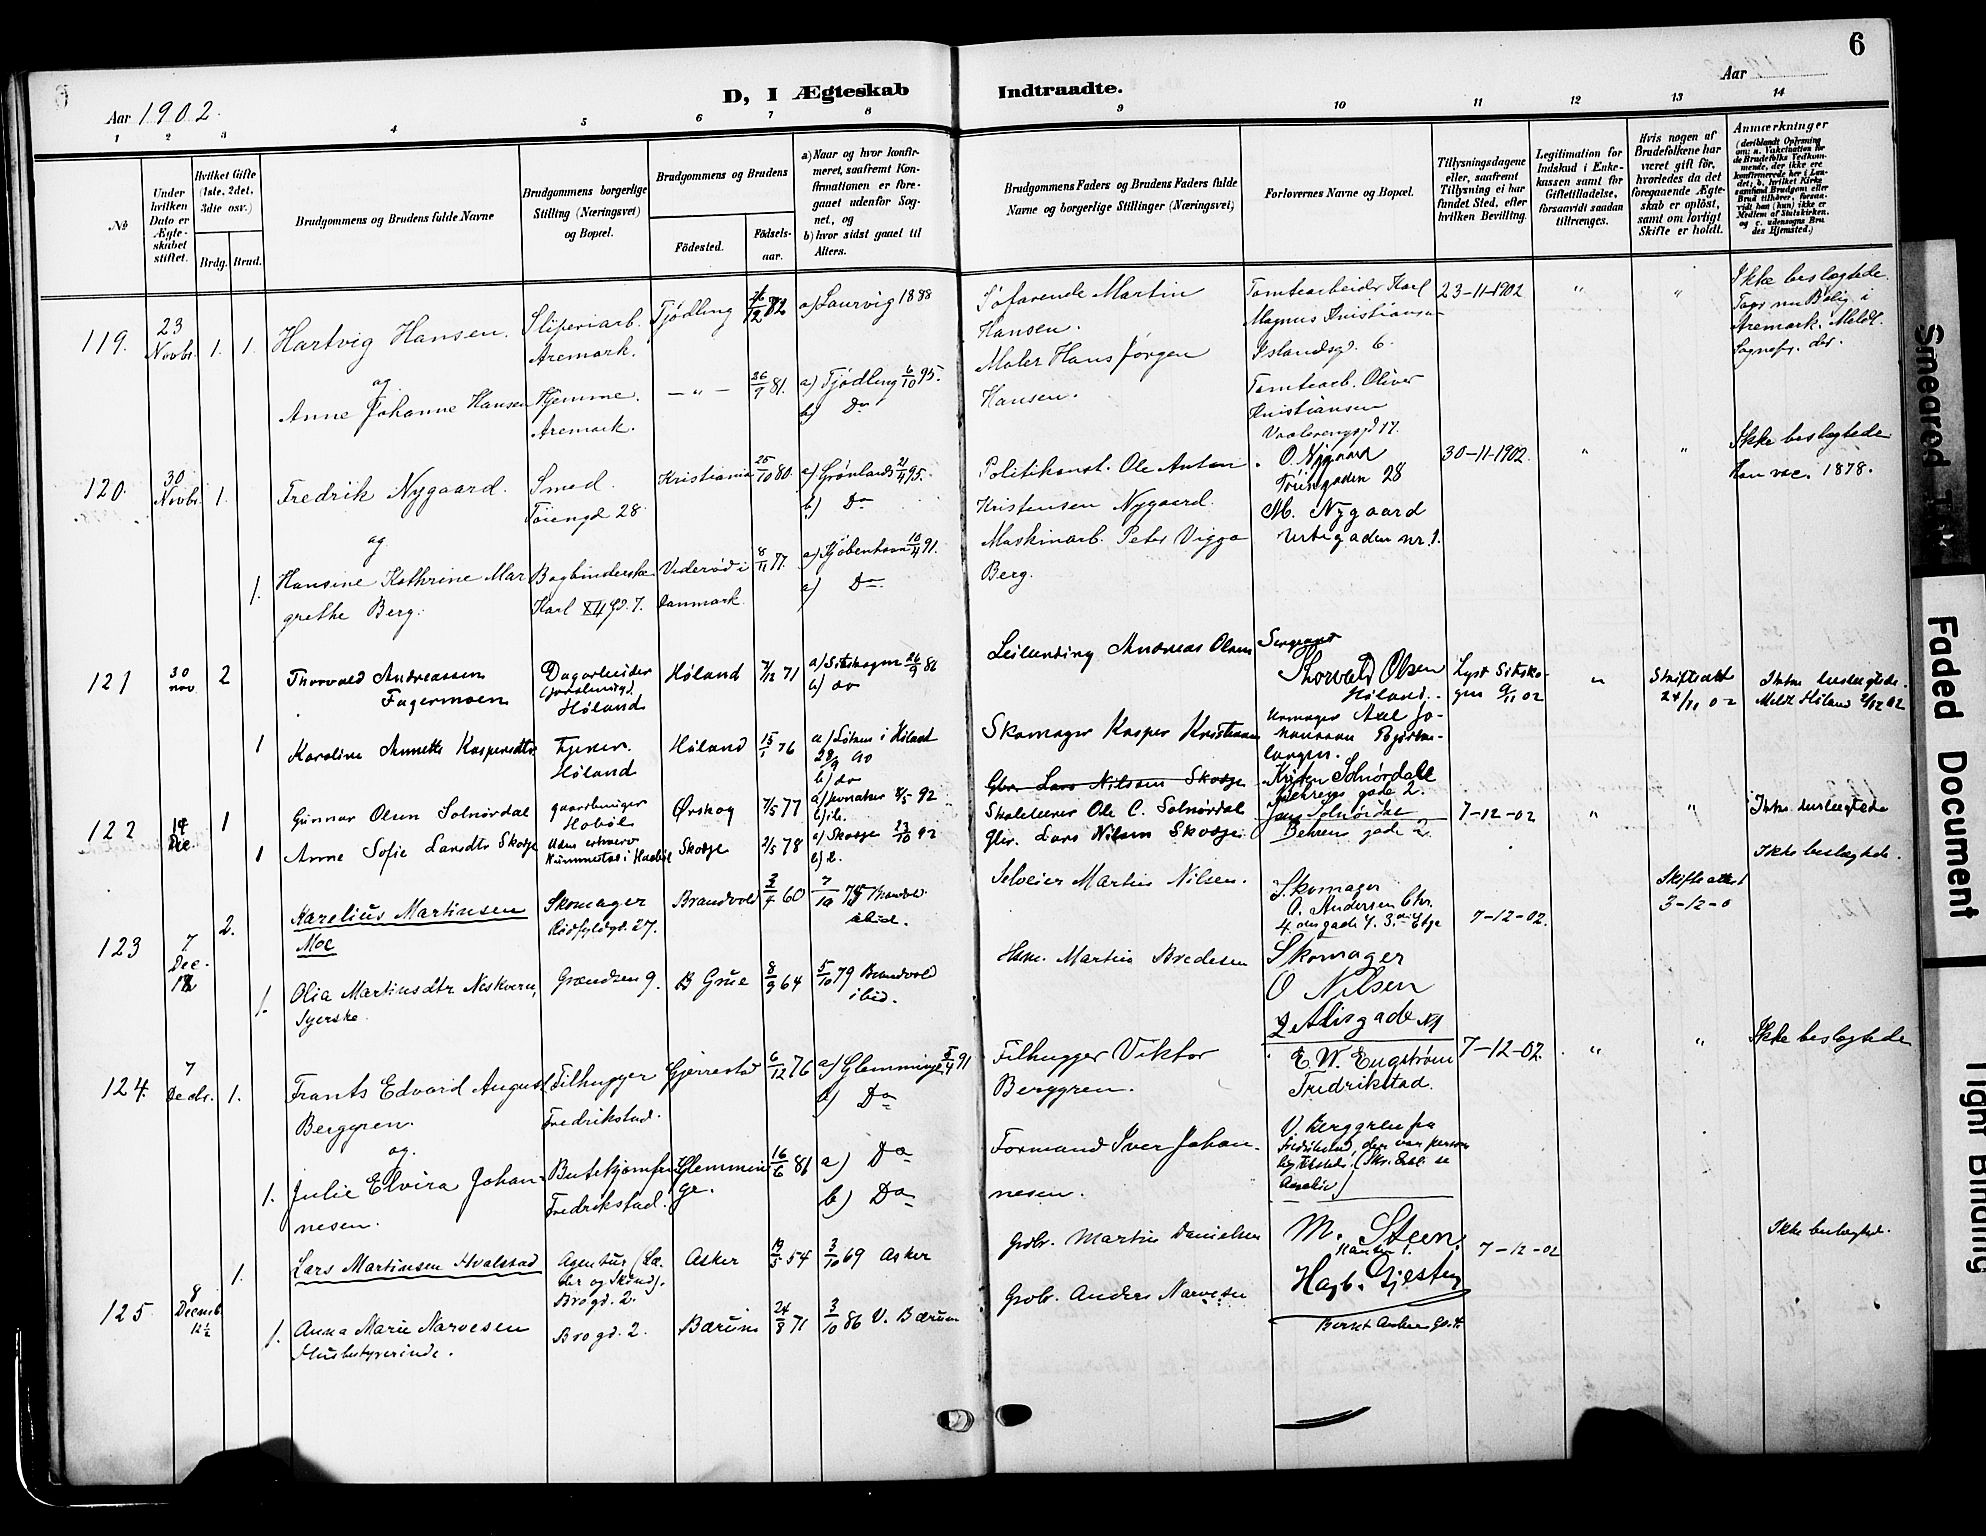 6
Aar 1902.
D, I Ægteskab Indtraadte.
Aar
1 2 3 4 5 6 7 8 9 10 11 12 13 14
№
Under hvilken Dato er Ægteskabet stiftet.
Hvilket Gifte (1ste, 2det, 3die osv.)
Brdg. Brud.
Brudgommens og Brudens fulde Navne
Brudgommens borgerlige Stilling (Næringsvei) og Bopæl.
Brudgommens og Brudens
Födested.
Födsels-aar.
a) Naar og hvor konfirmeret, saafremt Konfirmationen er foregaaet udenfor Sognet, og
b) hvor sidst gaaet til Alters.
Brudgommens Faders og Brudens Faders fulde Navne og borgerlige Stillinger (Næringsvei)
Forlovernes Navne og Bopæl.
Tillysningsdagene eller, saafremt Tillysning ei har fundet Sted, efter hvilken Bevilling.
Legitimation for Indskud i Enkekassen samt for Giftetilladelse, forsaavidt saadan tiltrænges.
Hvis nogen af Brudefolkene har været gift för, hvorledes da det foregaaende Ægteskab er oplöst, samt om lovligt Skifte er holdt.
Anmærkninger
119. 23 Novbr. 1. 1. Hartvig Hansen. Sliperiarb. Aremark. Tjödling a) Laurvig 1898
Söfarende Martin Hansen.
Tomtearbeider Karl Magnus Kristiansen Islandsgd. 6.
23-11-1902 " "
Ikke beslægtede. Tage nu Bolig i Aremark. Meldt. Sognepr. der.
og
Anne Johanne Hansen Hjemme. Aremark. — " — 26/9 81. a) Tjødling 6/10 95. b) Do
Maler Hans Jörgen Hansen.
Tomtearb. Oliver Kristiansen Vaalerenggd 17.
120. 30 Novbr. 1. Fredrik Nygaard. Smed. Töiengd 28. Kristiania 25/10 80. a) Grönlands 21/4 95. b) Do
Politikonst. Ole Anton Kristensen Nygaard.
O. Nygaard Töiengaden 28
30-11-1902. " "
Ikke beslægtede Han vac. 1878.
og
1. Hansine Kathrine Margrethe Berg. Bogbinderske Karl XII Gd. 7. Viderød i Danmark. 8/11 77. a) Kjøbenhavn 10/4 91. a) Do
Maskinarb. Peter Viggo Berg.
M. Nygaard Urtegaden nr. 1.
121 30 nov 2 Thorvald Andreassen Fagermoen Dagarbeider Høland Høland 7/12 71 a) Sitskogen 26/9 86 b) do
Leilending Andreas Olsen
Sergeant Thorvald Olsen Høland.
Lyst Sitskogen 9/11 02 " Skifteatt 24/11 02
Ikke beslegtede. Meldt Høland 2/12 02
1 Karoline Annette Kaspersdtr Tjener. Høland Høland 15/1 76 a) Løken i Høland 28/9 90 b) do
Skomager Kasper Kristiansen
Urmager Axel Johannsen
122 14 Dec 1 Gunnar Olsen Solnördal gaardbruger Hobøl Ørskog 7/5 77 8/5 92 b) ib.
Gbr. Lars Nilsen Skodje
Skolelærer Ole C. Solnördal
Solnördal Behrens gade 2.
7-12-02 " " Ikke beslegtede
1 Anne Sofie Larsdtr Skodje Uden erhverv Skodje 2/5 78 a) Skodje 23/10 92
Gbr. Lars Nilsen Skodje.
Solnördal Behrens gade 2.
123 7 Dec. 2. Karelius Martinsen Moe Skomager Rödfyldgd. 27. Brandvold 60 Brandvol ibid.
Selveier Martin Nilsen.
Skomager O. Andersen Chr. 4. des gade 4. 3. Etge
7-12-02. Skifteattest 3-12-0
Ikke beslægtede.
1. Olia Martinsdtr Neskvern, Syerske. Grændsen 9. B Grue 8/9 64 5/10 79 Brandvold ibid.
Hsm. Martin Bredesen
Skomager O Nilsen
124. 7 Decbr. 1. Frants Edvard August Berggren. Filhugger Fredrikstad. Gjerrestad 6/12 76 a) Glemminge 5/4 91 b) Do
Filhugger Viktor Berggren.
E. W. Engström Fredrikstad.
7-12-02. " " Ikke beslægtede
og
1. Julie Elvira Johannesen. Butikjomfru Fredrikstad. Glemminge. 16/6 81 a) Do b) Do
Formand Iver Johannesen.
V. Berggren fra Fredrikstad, der var person
125. 8 Decemb. 12½ 1. Lars Martinsen Hvalstad Agentur (Læder og Skind). Brogd. 2. Asker 19/5 54 3/10 69 Asker
Grdbr. Martin Danielsen
M. Steen
7-12-02
Ikke beslægtede.
1. Anna Marie Narvesen Husbestyrerinde. Brogd. 2. Bærum 24/8 71 3/10 86 V. Bærum
Grdbr. Anders Narvesen
Smeared Text
Faded Document
Tight Binding